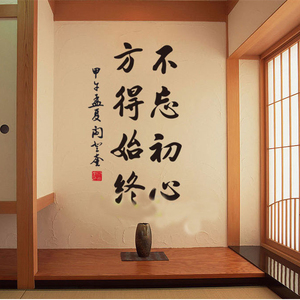 不忘初心
方得始终
甲午孟夏